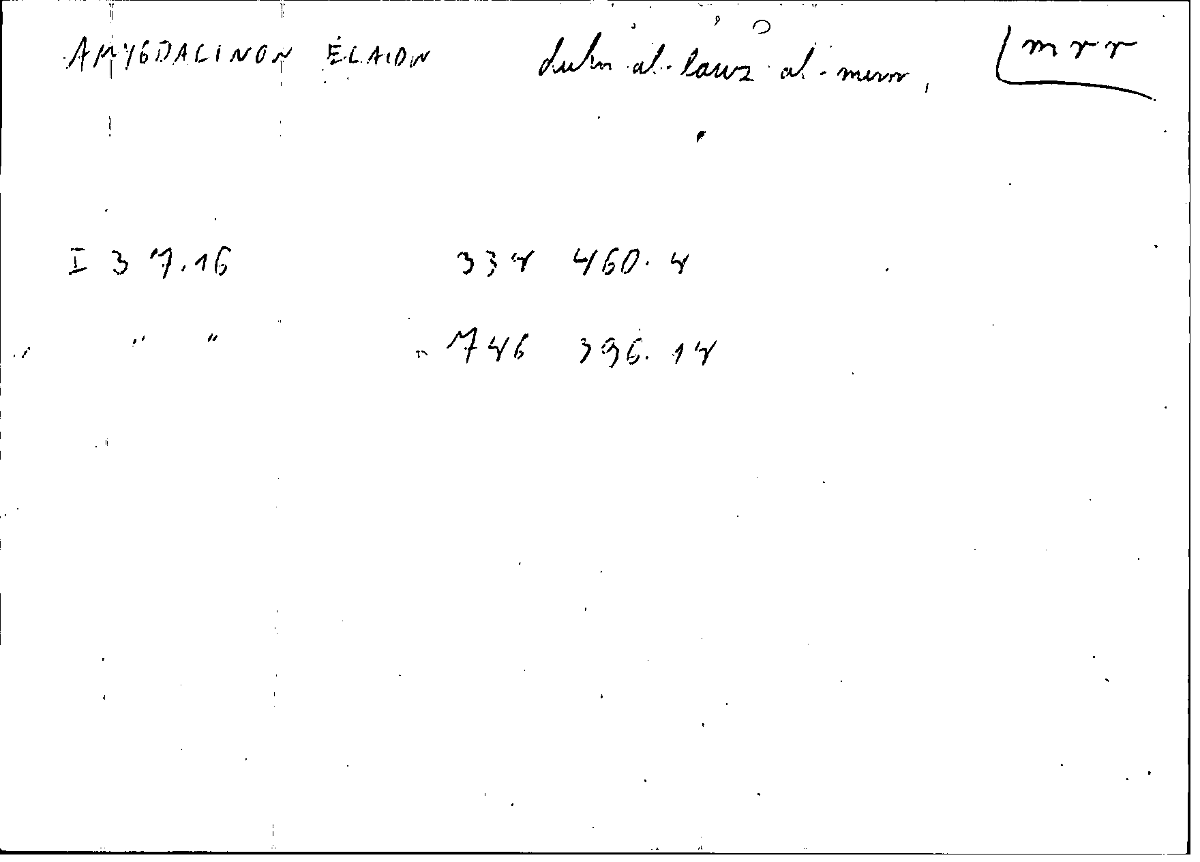 AMYGDALINON ÉLAION duhn al-lawz al-murr, mrr
I 37.16 334 460.4
" " 746 396.14